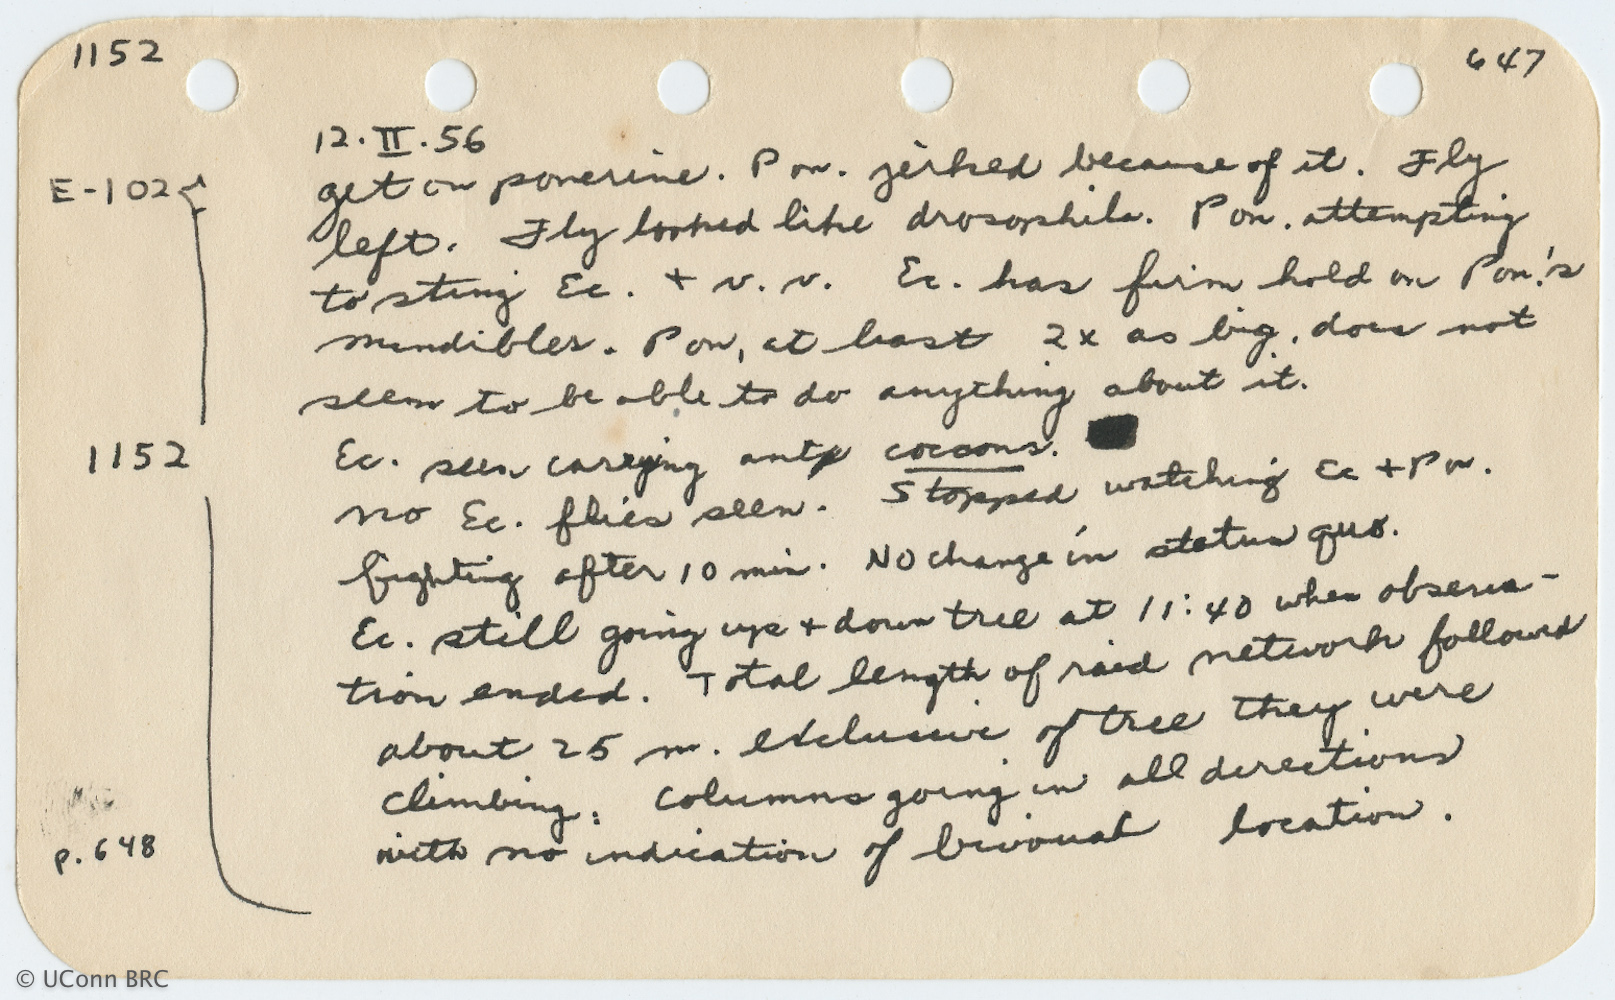 1152
647
12.II.56
E-102
get on ponerine. Pon. jerked because of it. Fly
left. Fly looked like drosophila. Pon. attempting
to sting Ec. + v.v. Ec. has firm hold on Pon.'s
mandibles. Pon, at least 2x as big, does not
seem to be able to do anything about it.
1152
Ec. seen carrying ant cocoons.
no Ec. flies seen. Stopped watching Ec + Pon.
fighting after 10 min. No change in status quo.
Ec. still going up + down tree at 11:40 when observa-
tion ended. Total length of raid network followed
about 25 m. exclusive of tree they were
climbing. Columns going in all directions
with no indication of bivouak location.
p. 648
© UConn BRC